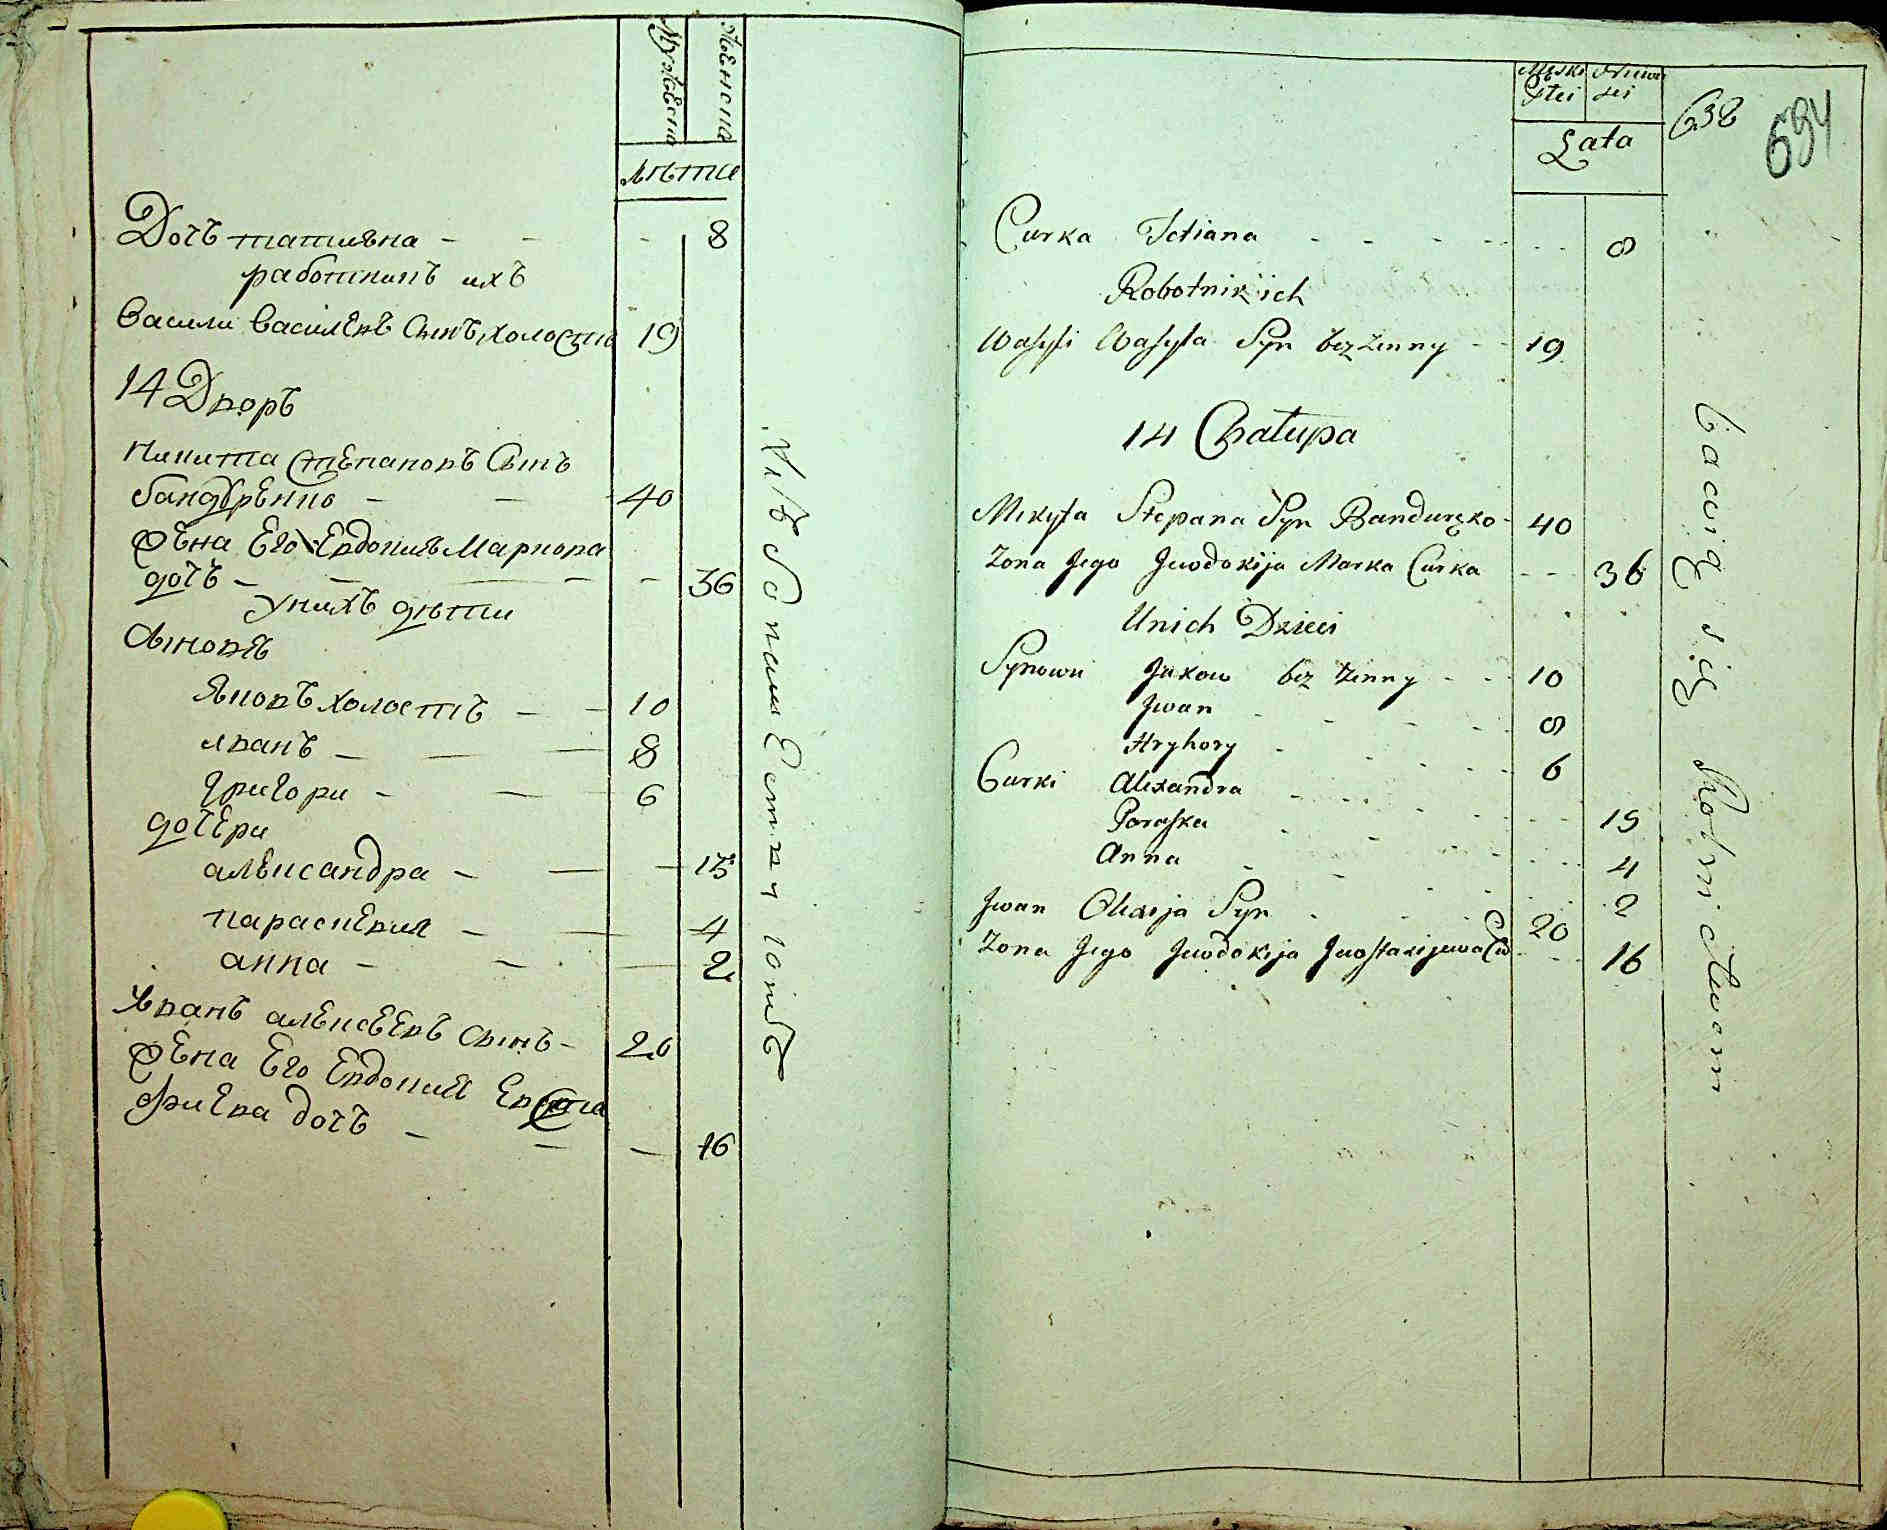 Мужеска
Женска
Лѣта
Дочь татияна - - - 8
работникъ ихъ
Васили Василевъ Сынъ холостъ 19
14 Дворъ
Никита Степановъ Сынъ
бандуренко - - 40
Жена Его Евдокия Маркова
дочь - - - - 36
Унихъ дѣти
Сыновя
Яковъ холостъ - - 10
иванъ - - - 8
григори - - - 6
дочери
александра - - - 15
параскевия - - - 4
анна - - - 2
Иванъ алексеевъ сынъ - 20
Жена Его Евдокия Евста
фиева дочь - - - 16
Хлебопашествують
Męsko Niewie
Płei sci
638
694
Lata
Curka Tetiana - - - - - - 8
Robotnik ich
Wasyli Wasyla Syn bez żenny - - 19
14 Chałupa
Mikyta Stepana Syn Bandurzko - 40
Zona Jego Jewdokija Marka Curka - - 36
Unich Dzieci
Synowie Jakow bez żenny - - 10
Jwan - - - - 8
Hryhory - - - - 6
Curki Alexandra - - - - 15
Paraska - - - - 4
Anna - - - - 2
Jwan Olexija Syn - - - 20
Zona Jego Jewdokija Jewstafijewa Cu - - 16
bawią się Rolnictwem